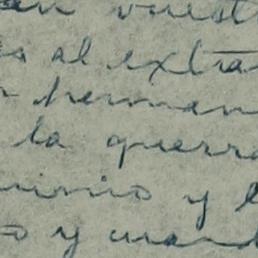 an vuest
o al extra
n herman
la guerra
minio y l
o y cuand